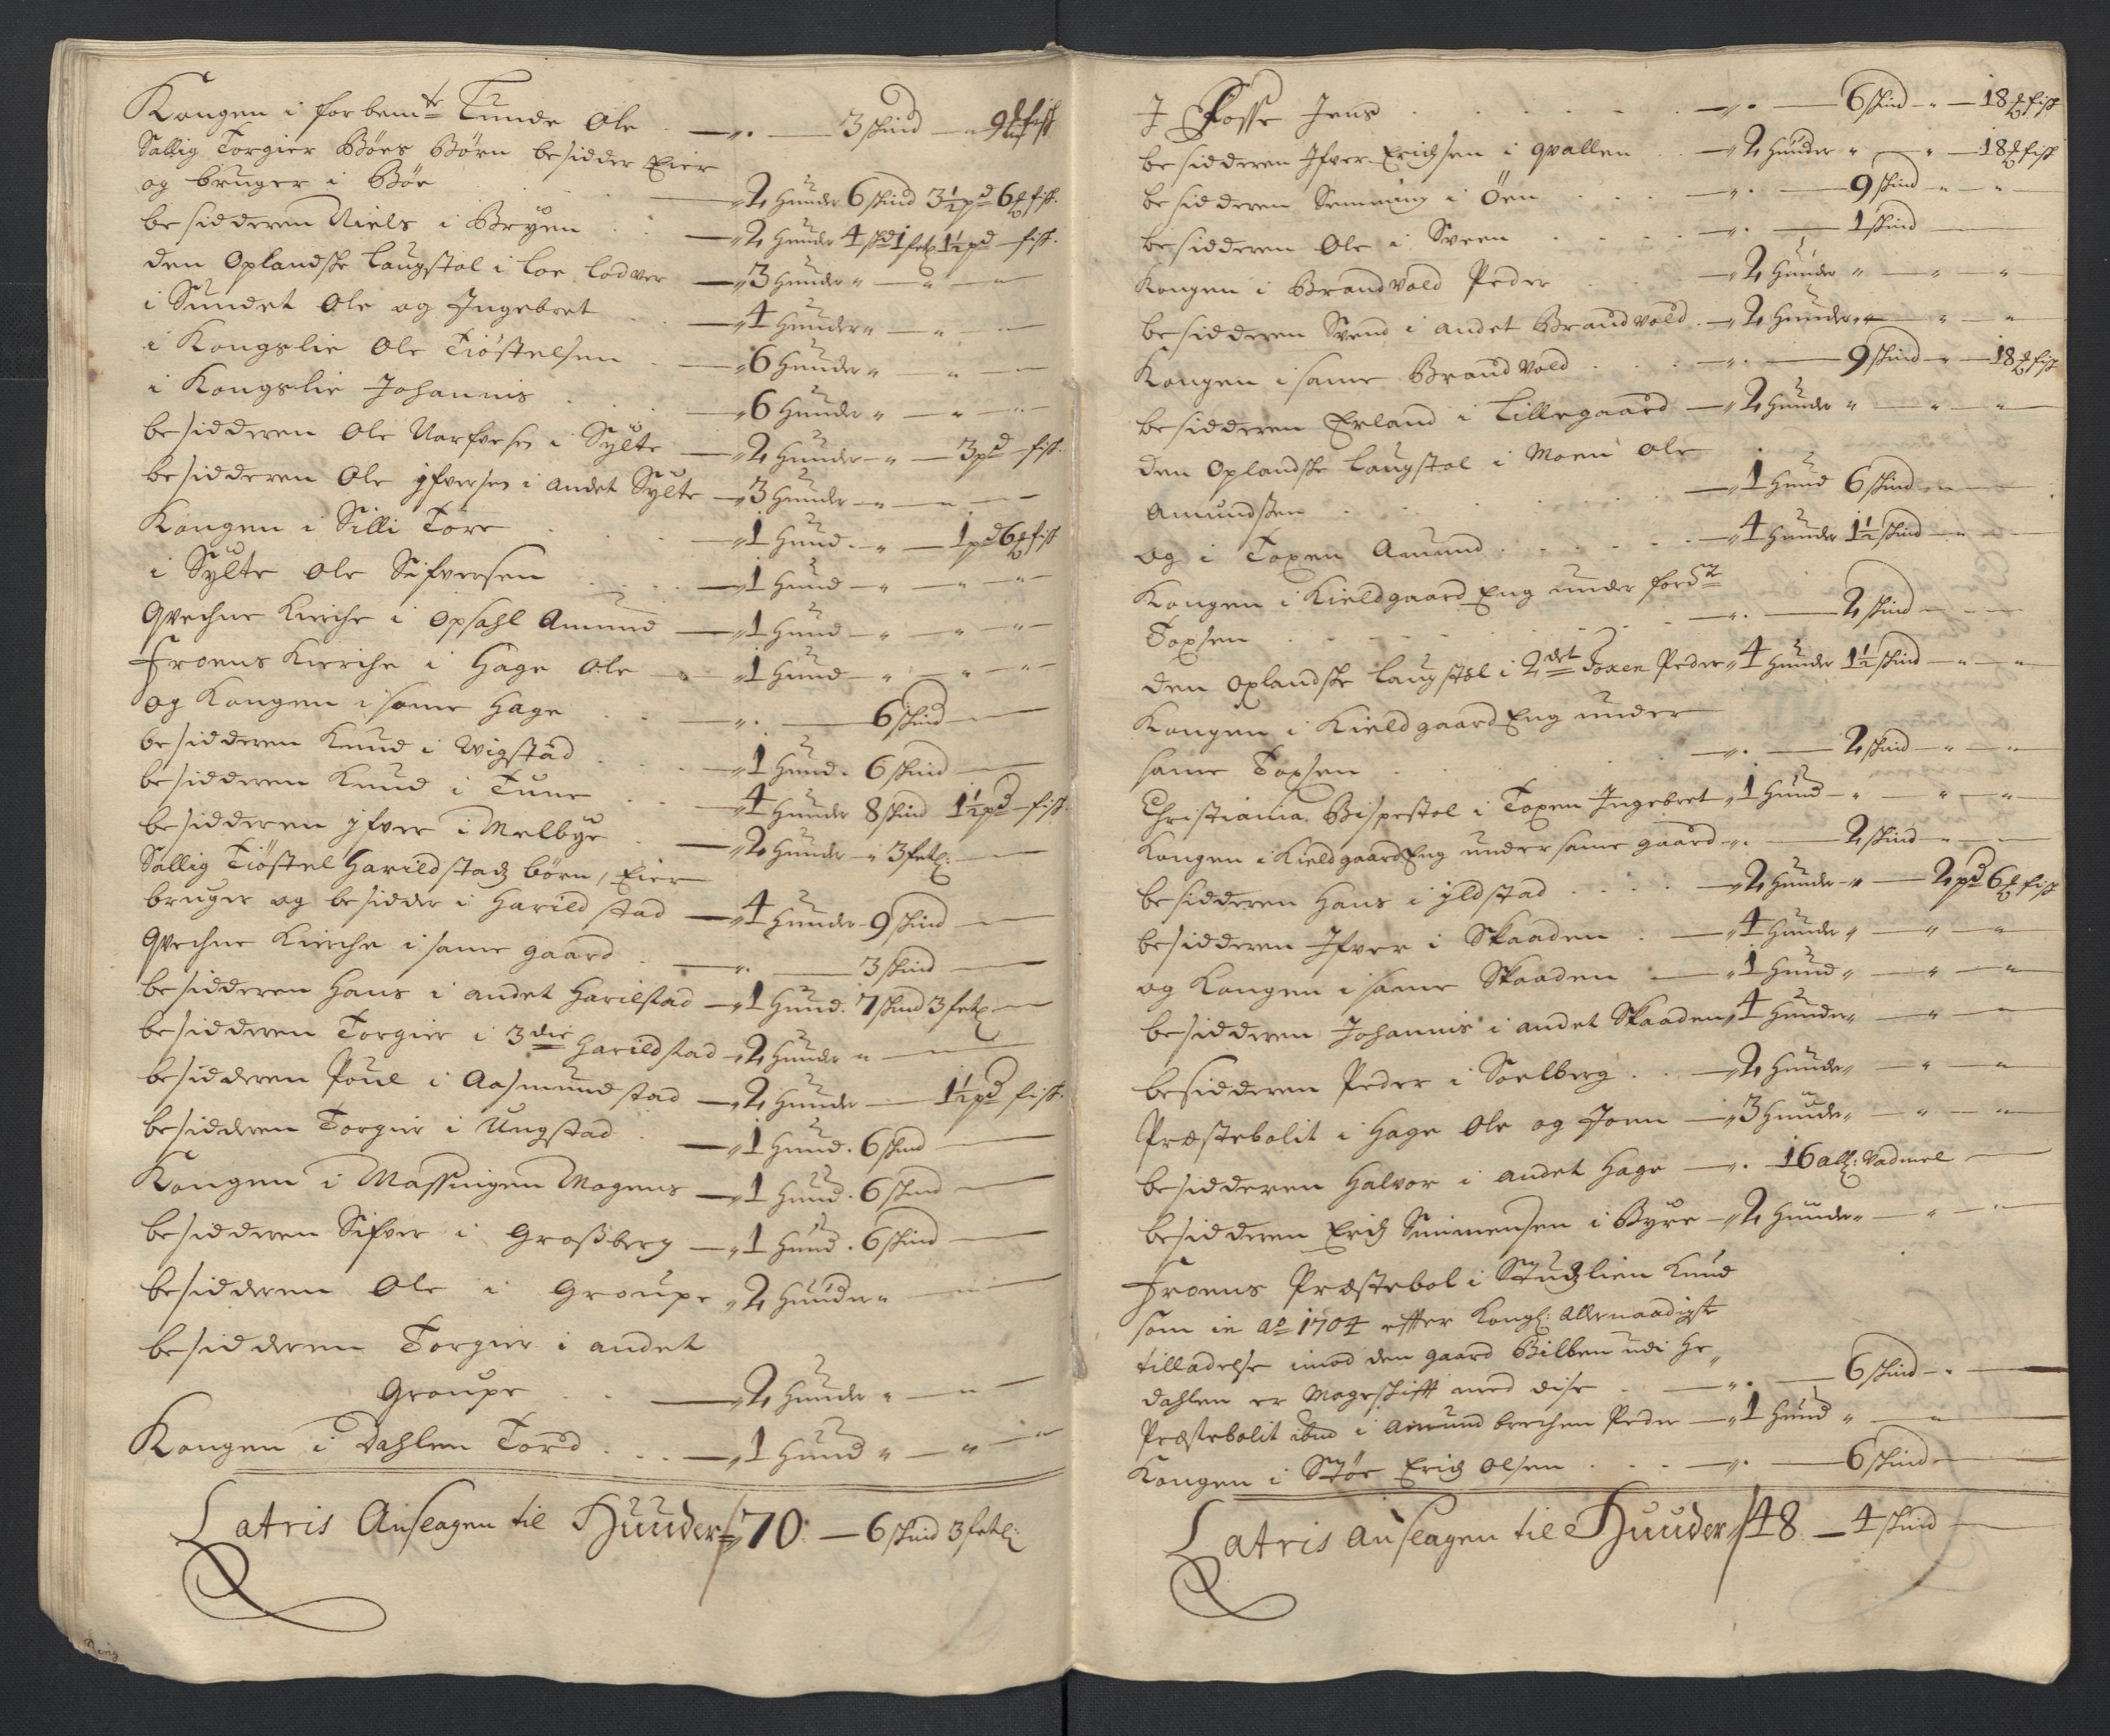 Kongen i forbemte Tunde Ole . — „. — 3 skind — 9 ℔ fisk
Sallig Torgier Bøes Børn besidder Eier
og bruger i Bøe — 2 Hunder 6 skind 3½ pd 6 ℔ fisk.
besidderen Niels i Bryen . . — „2 Hunder 4 skd 1 fetl 1½ pd — fisk.
den Oplandske laugstol i Loe Lodver — „3 Hunder „ — „ —
i Sundet Ole og Ingebret . — „4 Hunder „ — „ —
i Kongslie Ole Tiøstelsen . — „6 Hunder „ — „ —
i Kongslie Johannis . . . — „6 Hunder „ — „ —
besidderen Ole Narfvesen i Sylte — „2 Hunder — „ — 3 pd — fisk.
besidderen Ole Ifversen i andet Sylte — „3 Hunder — „ — „ —
Kongen i Silli Tore . . . — „1 Hund — „ — 1 pd 6 ℔ fisk
i Sylte Ole Sifversen . . . — „1 Hund — „ — „ —
Qvechne Kirche i Opsahl Amund — „1 Hund — „ — „ —
Froens Kierche i Hage Ole — „1 Hund — „ — „ —
og Kongen i same Hage . . — „. — 6 skind —
besidderen Knud i Wigstad . . . — „1 Hund. 6 skind —
besidderen Knud i Tune . . — „4 Hunder 8 skind 1½ pd — fisk.
besidderen Ifver i Melbye . — „2 Hunder — „ 3 fetl: —
Sallig Tiøstel Harildstads børn, Eier
bruger og besidder i Harildstad — „4 Hunder — 9 skind —
Qvechne Kirche i same gaard . — „. — 3 skind —
besidderen Hans i andet Harilstad — „1 Hund. 7 skind 3 fetl —
besidderen Torgier i 3die Harildstad — „2 Hunder „ —
besidderen Poul i Aasmundstad — „2 Hunder — 1½ pd fisk.
besidderen Torgier i Ungstad . — „1 Hund. 6 skind —
Kongen i Massingen Mogens — „1 Hund. 6 skind —
besidderen Sifver i Grossberg — „1 Hund. 6 skind —
besidderen Ole i Groupe „2 Hunder „ —
besidderen Torgier i andet
Groupe . . — „2 Hunder „ — „ —
Kongen i Dahlen Tord . . . — „1 Hund „ — „ —
Latris Anslagen til Huuder 70. — 6 skind 3 fetl:
I Fosse Jens . . . . . . — „. — 6 skind — „ — 18 ℔ fisk
besidderen Ifver Erichsen i qvallen . — „2 Hunder „ — „ — 18 ℔ fisk
besidderen Semming i Öen . . . . — „. — 9 skind — „ — „
besidderen Ole i Sveen . . . . . — „. — 1 skind —
Kongen i Brandvold Peder . . . — „2 Hunder „ — „ — „
besidderen Svend i andet Brandvold . — „2 Hunder „ — „ — „
Kongen i same Brandvold . . . . „. — 9 skind — „ — 18 ℔ fisk
besidderen Erland i Lillegaard — „2 Hunder „ — „ — „
den Oplandske laugstol i Moen Ole
Amundsen . . . . . . — „1 Hund 6 skind — „ —
og i Toxen Amund . . . . . — „4 Hunder 1½ skind — „ —
Kongen i Kieldgaard Eng under forde
Toxsen . . . . . . — „. — 2 skind — „ —
den Oplandske laugstol i 2det Toxen Peder „4 Hunder 1½ skind — „ — „
Kongen i Kieldgaard Eng under
same Toxsen . . . . . — „. — 2 skind — „ — „
Christiania Bispestol i Toxen Ingebret „1 Hund — „ — „ — „
Kongen i Kieldgaard Eng under same gaard — „. — 2 skind — „ —
besidderen Hans i Yldstad . . . . — „2 Hunder — „ — 2 pd 6 ℔ fisk
besidderen Ifver i Skaaden . — „4 Hunder „ — „ — „
og Kongen i same Skaaden . — „1 Hund „ — „ — „
besidderen Johannis i andet Skaaden „4 Hunder „ — „ — „
besidderen Peder i Soelberg . . — „2 Hunder „ — „ — „
Præstebolit i Hage Ole og Joen — „3 Hunder „ — „ — „
besidderen Halvor i andet Hage — „. 16 all: Vadmel —
besidderen Erich Simmensen i Byre — „2 Hunder „ — „ — „
Froens Præstebol i Studslien Knud
som in Ao 1704 effter Kongl: Allernaadigste
tilladelse imod den gaard Bilben udi He„
dahlen er Mageskifft med dise . . — „. — 6 skind — „ —
Præstebolit ibm i Amundbrechen Peder — „1 Hund „ — „ —
Kongen i Støe Erich Olsen . . . . — „. — 6 skind „ —
Latris anslagen til Huuder 48 — 4 skind —